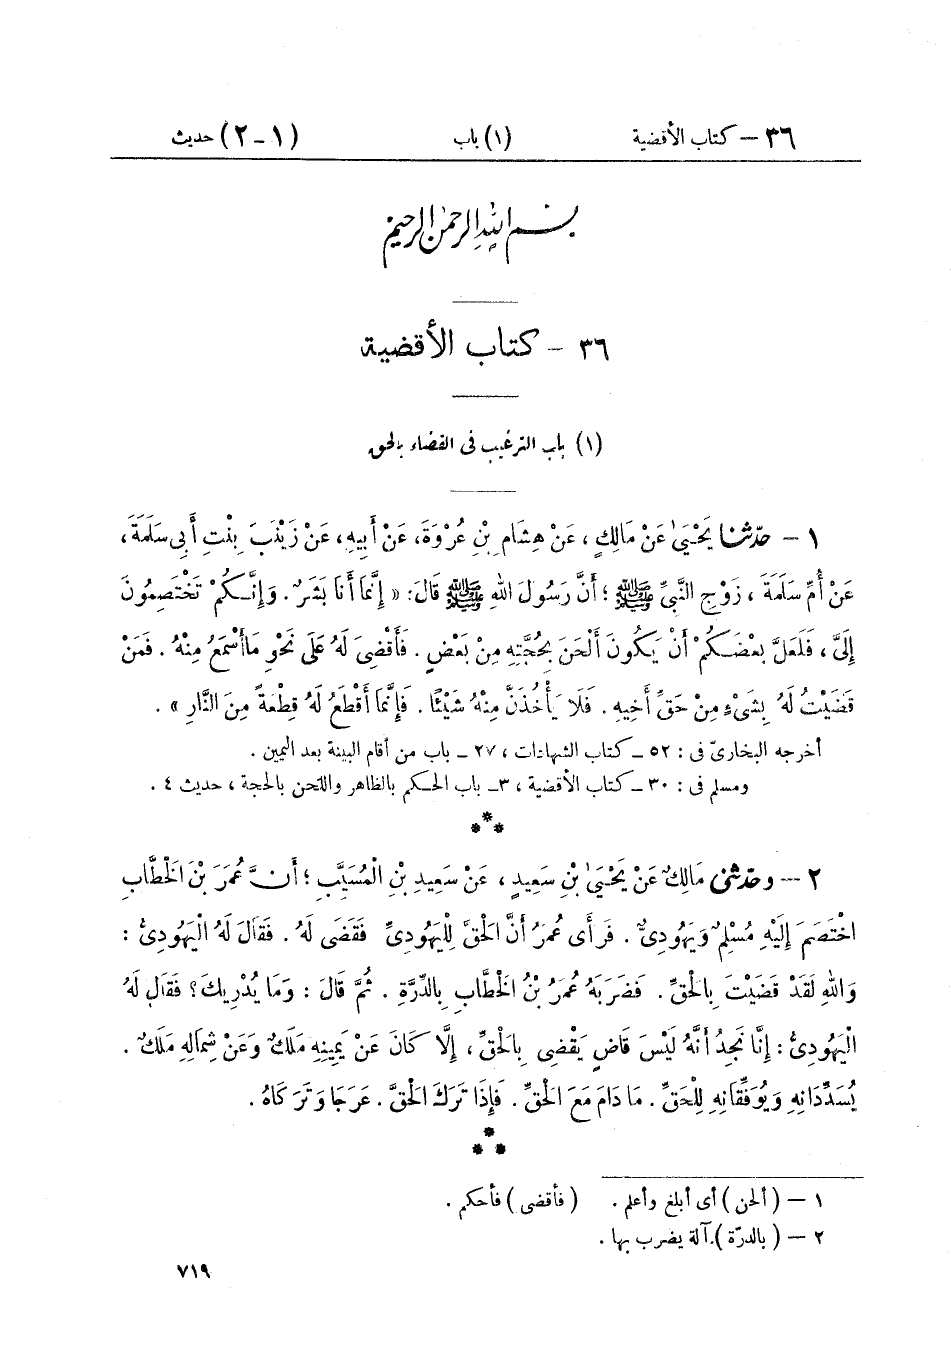 ٣٦ – كتاب الأقضية (١) باب (١ – ٢) حديث
بسم الله الرحمن الرحيم
٣٦ - كتاب الأقضية
(١) باب الترغيب فى القضاء بالحق
١ – حدّثنا يَحْيَىٰ عَنْ مَالِكٍ، عَنْ هِشَامِ بْنِ عُرْوَةَ، عَنْ أَبِيهِ، عَنْ زَيْنَبَ بِنْتِ أَبِى سَلَمَةَ،
عَنْ أُمِّ سَلَمَةَ، زَوْجِ النَّبِىِّ ﷺ؛ أَنَّ رَسُولَ اللهِ ﷺ قَالَ: « إِنَّمَا أَنَا بَشَرٌ. وَإِنَّكُمْ تَخْتَصِمُونَ
إِلَىَّ، فَلَعَلَّ بَعْضَكُمْ أَنْ يَكُونَ أَلْحَنَ بِحُجَّتِهِ مِنْ بَعْضٍ. فَأَقْضِىَ لَهُ عَلَى نَحْوِ مَاأَسْمَعُ مِنْهُ. فَمَنْ
قَضَيْتُ لَهُ بِشَىْءٍ مِنْ حَقِّ أَخِيهِ. فَلَا يَأْخُذَنَّ مِنْهُ شَيْئًا. فَإِنَّمَا أَقْطَعُ لَهُ قِطْعَةً مِنَ النَّارِ ».
أخرجه البخارىّ فى : ٥٢ – كتاب الشهادات، ٢٧ – باب من أقام البينة بعد اليمين.
ومسلم فى : ٣٠ – كتاب الأقضية، ٣– باب الحكم بالظاهر واللحن بالحجة، حديث ٤.
***
٢ – وحدّثنى مَالِكٌ عَنْ يَحْيَىٰ بْنِ سَعِيدٍ، عَنْ سَعِيدِ بْنِ الْمُسَيَّبِ؛ أَنَّ عُمَرَ بْنَ الْخَطَّابِ
اخْتَصَمَ إِلَيْهِ مُسْلِمٌ وَيَهُودِىٌّ. فَرَأَى عُمَرُ أَنَّ الْحَقَّ لِلْيَهُودِىِّ فَقَضَى لَهُ. فَقَالَ لَهُ الْيَهُودِىُّ :
وَاللهِ لَقَدْ قَضَيْتَ بِالْحَقِّ. فَضَرَبَهُ عُمَرُ بْنُ الْخَطَّابِ بِالدِّرَّةِ. ثُمَّ قَالَ : وَمَا يُدْرِيكَ؟ فَقَالَ لَهُ
الْيَهُودِىُّ : إِنَّا نَجِدُ أَنَّهُ لَيْسَ قَاضٍ يَقْضِى بِالْحَقِّ، إِلَّا كَانَ عَنْ يَمِينِهِ مَلَكٌ وَعَنْ شِمَالِهِ مَلَكٌ.
يُسَدِّدَانِهِ وَيُوَفِّقَانِهِ لِلْحَقِّ. مَا دَامَ مَعَ الْحَقِّ. فَإِذَا تَرَكَ الْحَقَّ. عَرَجَا وَتَرَكَاهُ.
***
١ – ( ألحن ) أى أبلغ وأعلم. ( فأقضى ) فأحكم.
٢ – ( بالدرّة ) آلة يضرب بها.
٧١٩